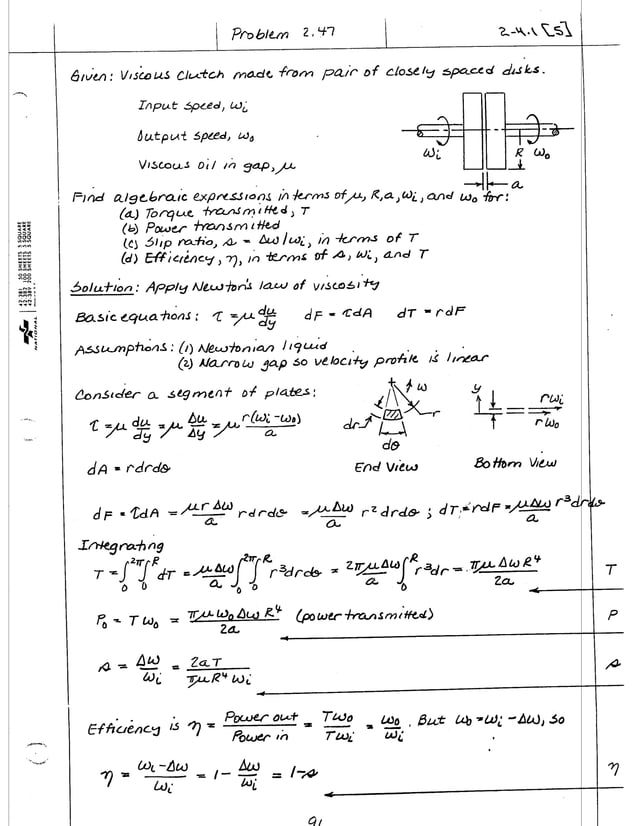 Problem 2.47
2-4.1 [5]
Given: Viscous Clutch made from pair of closely spaced disks.
Input speed, ωi
Output speed, ωo
Viscous oil in gap, μ
ωi R ωo
a
Find algebraic expressions in terms of μ, R, a, ωi, and ωo for:
(a) Torque transmitted, T
(b) Power transmitted
(c) Slip ratio, s = Δω/ωi, in terms of T
(d) Efficiency, η, in terms of s, ωi, and T
Solution: Apply Newton's law of viscosity
Basic equations: τ = μ du/dy dF = τdA dT = rdF
Assumptions: (1) Newtonian liquid
(2) Narrow gap so velocity profile is linear
Consider a segment of plates:
τ = μ du/dy = μ Δu/Δy = μ r(ωi-ωo)/a
dA = rdrdθ
ω
dr
r
dθ
End View
y
rωi
rωo
Bottom View
dF = τdA = μrΔω/a rdrdθ = μΔω/a r² drdθ ; dT = rdF = μΔω/a r³drdθ
Integrating
T = ∫₀^2π ∫₀^R dT = μΔω/a ∫₀^2π ∫₀^R r³drdθ = 2πμΔω/a ∫₀^R r³dr = πμΔωR⁴/2a
T
Po = Tωo = πμωoΔωR⁴/2a (power transmitted)
P
s = Δω/ωi = 2aT/πμR⁴ωi
s
Efficiency is η = Power out/Power in = Tωo/Tωi = ωo/ωi. But ωo = ωi - Δω, so
η = ωi-Δω/ωi = 1 - Δω/ωi = 1-s
η